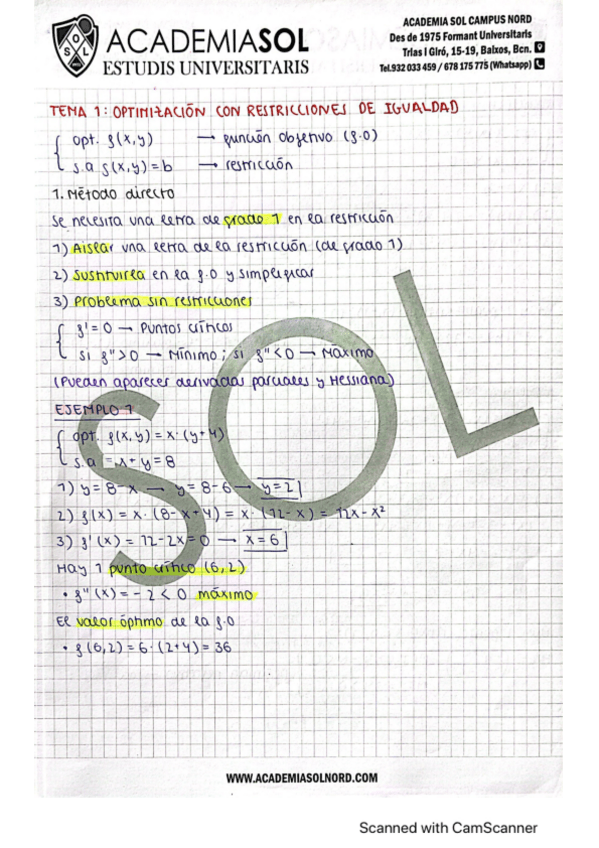 ACADEMIA SOL CAMPUS NORD
Des de 1975 Formant Universitaris
Trias I Giró, 15-19, Baixos, Bcn.
Tel.932 033 459 / 678 175 775 (Whatsapp)
SOL
ACADEMIASOL
ESTUDIS UNIVERSITARIS
TEMA 1: OPTIMIZACIÓN CON RESTRICCIONES DE IGUALDAD
opt. f(x,y) → función objetivo (f.o)
s.a g(x,y) = b → restricción
1. Método directo
Se necesita una letra de grado 1 en la restricción
1) Aislar una letra de la restricción (de grado 1)
2) Sustituirla en la f.o y simplificar
3) Problema sin restricciones
f' = 0 → Puntos críticos
Si f'' > 0 → Mínimo ; si f'' < 0 → Máximo
(Pueden aparecer derivadas parciales y Hessiana)
EJEMPLO 1
opt. f(x,y) = x · (y+4)
s.a = x + y = 8
1) y = 8 - x → y = 8 - 6 → y = 2
2) f(x) = x · (8 - x + 4) = x · (12 - x) = 12x - x²
3) f'(x) = 12 - 2x = 0 → x = 6
Hay 1 punto crítico (6,2)
• f''(x) = -2 < 0 máximo
El valor óptimo de la f.o
• f(6,2) = 6 · (2+4) = 36
SOL
WWW.ACADEMIASOLNORD.COM
Scanned with CamScanner